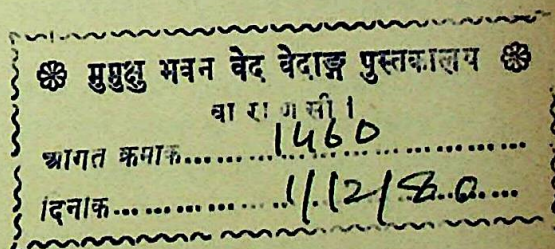 ❀ मुमुक्षु भवन वेद वेदाङ्ग पुस्तकालय ❀
वाराणसी।
आगत क्रमाक............1460............
दिनाक............1/12/80......